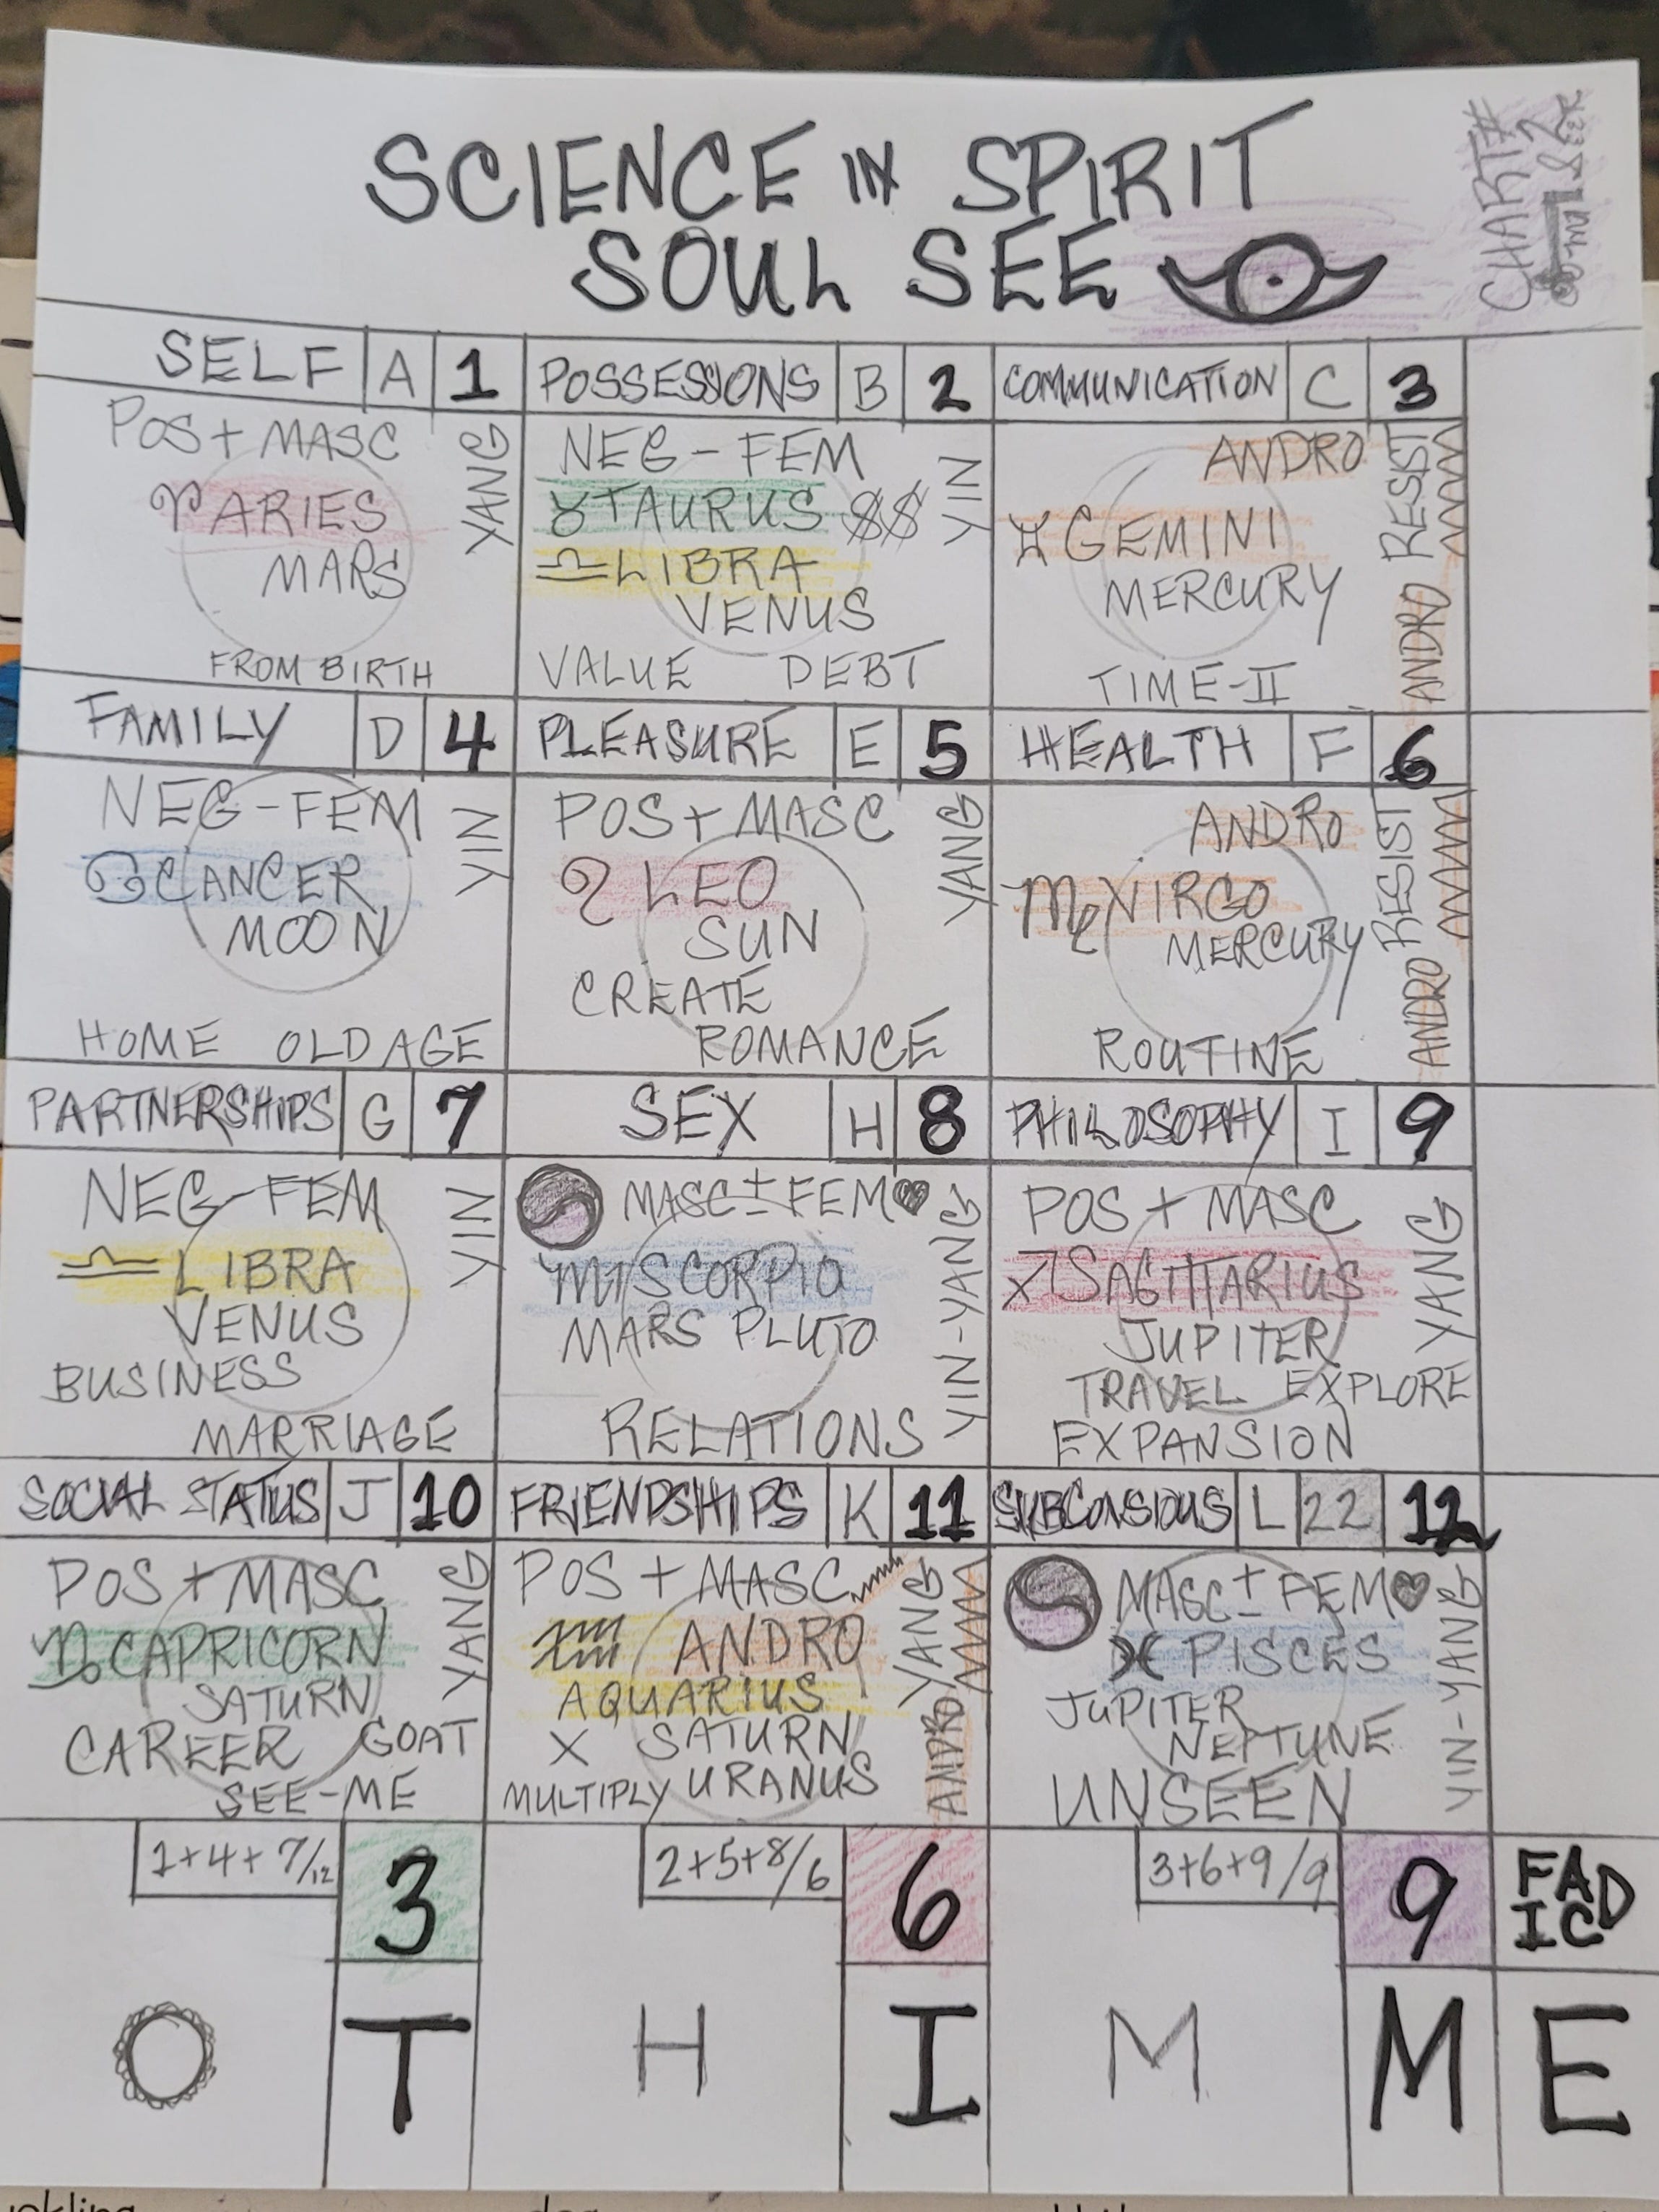 SCIENCE IN SPIRIT
SOUL SEE
CHART#
SELF A 1
POS + MASC
YANG
♈ ARIES
MARS
FROM BIRTH
POSSESSIONS B 2
NEG - FEM
YIN
♉ TAURUS $$
♎ LIBRA
VENUS
VALUE DEBT
COMMUNICATION C 3
ANDRO
ANDRO RESIST
♊ GEMINI
MERCURY
TIME-II
FAMILY D 4
NEG-FEM
YIN
♋ CANCER
MOON
HOME OLD AGE
PLEASURE E 5
POS + MASC
YANG
♌ LEO
SUN
CREATE
ROMANCE
HEALTH F 6
ANDRO
ANDRO RESIST
♍ VIRGO
MERCURY
ROUTINE
PARTNERSHIPS G 7
NEG-FEM
YIN
♎ LIBRA
VENUS
BUSINESS
MARRIAGE
SEX H 8
MASC ± FEM ♥
YIN-YANG
♏ SCORPIO
MARS PLUTO
RELATIONS
PHILOSOPHY I 9
POS + MASC
YANG
♐ SAGITTARIUS
JUPITER
TRAVEL EXPLORE
EXPANSION
SOCIAL STATUS J 10
POS + MASC
YANG
♑ CAPRICORN
SATURN
CAREER GOAT
SEE-ME
FRIENDSHIPS K 11
POS + MASC
ANDRO YANG
♒ ANDRO
AQUARIUS
X SATURN
MULTIPLY URANUS
SUBCONSIOUS L 22 12
MASC ± FEM ♥
YIN-YANG
♓ PISCES
JUPITER
NEPTUNE
UNSEEN
1+4+7/12 3
2+5+8/6 6
3+6+9/9 9
FADIC
O T H I M M E